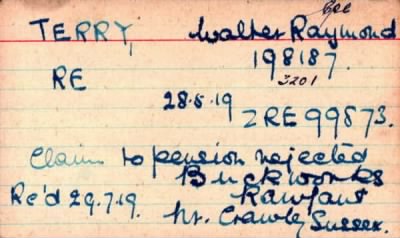 Spr
TERRY, Walter Raymond
198187.
RE 3201
28.5.19
ZRE 99873.
Claim to pension rejected
Buckworks
Re'd 29.7.19. Rawfant
Nr. Crawley Sussex.